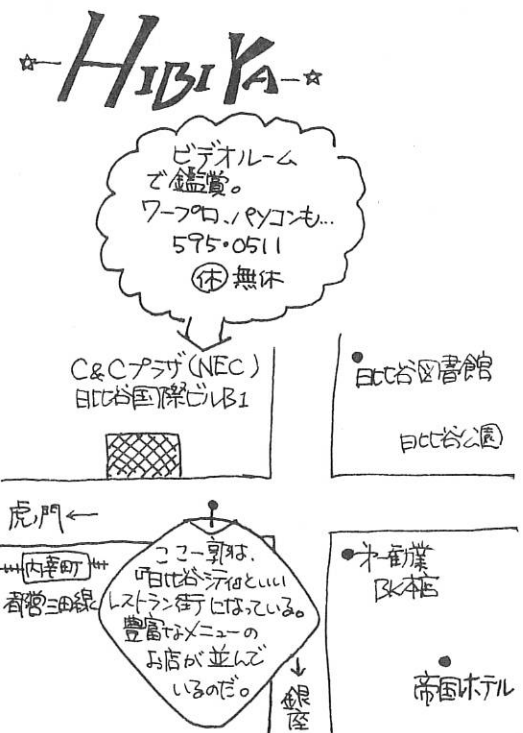 HIBIYA
ビデオルーム
で鑑賞。
ワープロ、パソコンも…
595・0511
休 無休
C&Cプラザ(NEC)
日比谷国際ビルB1
日比谷図書館
日比谷公園
虎ノ門←
内幸町
都営三田線
ここ一郭は、
『日比谷シティ』といい
レストラン街になっている。
豊富なメニューの
お店が並んで
いるのだ。
↓
銀座
第一勧業
BK本店
帝国ホテル